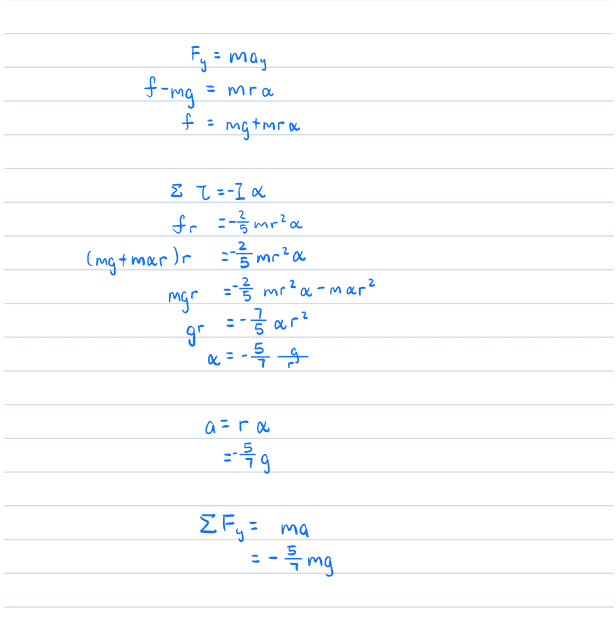 F_y = ma_y
f-mg = mrα
f = mg+mrα
Σ τ = -Iα
fr = -2/5 mr²α
(mg+mαr)r = -2/5 mr²α
mgr = -2/5 mr²α - mαr²
gr = -7/5 αr²
α = -5/7 g/r
a = r α
= -5/7 g
ΣF_y = ma
= -5/7 mg